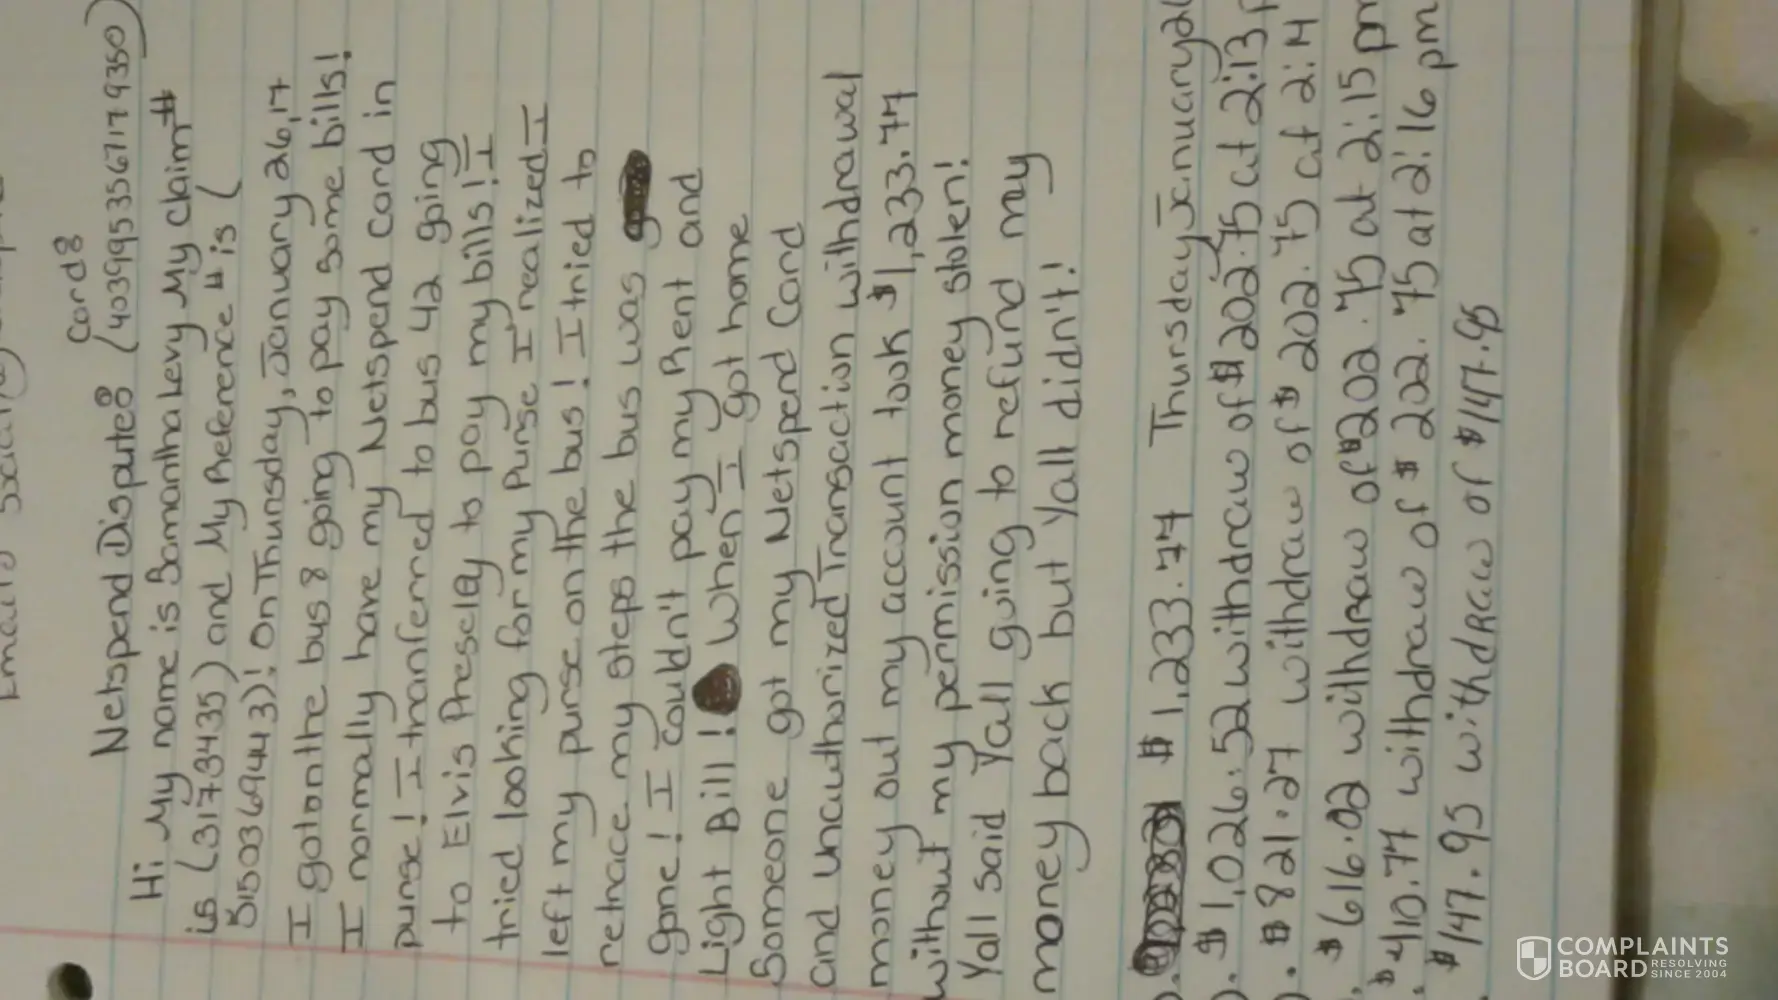 Card8
Netspend Dispute8 (4039953567179350)
Hi My name is Samantha Levy My claim#
is (3173435) and My Reference # is (
5150369443)! On Thursday, January 26,17
I got on the bus 8 going to pay some bills!
I normally have my Netspend card in
purse! I transferred to bus 42 going
to Elvis Presley to pay my bills! I
tried looking for my purse I realized I
left my purse on the bus! I tried to
retrace my steps the bus was
gone! I couldn't pay my Rent and
Light Bill! When I got home
Someone got my Netspend Card
and unauthorized Transaction withdrawal
money out my account took $1,233.74
without my permission money stolen!
Yall said Yall going to refund my
money back but Yall didn't!
$1,233.74 Thursday January
$1,026.52 withdraw of $202.75 at 2:13
$821.27 withdraw of $202.75 at 2:14
$616.02 withdraw of $202.75 at 2:15 pm
$410.77 withdraw of $202.75 at 2:16 pm
$147.95 withdraw of $147.95
COMPLAINTS
BOARD RESOLVING
SINCE 2004